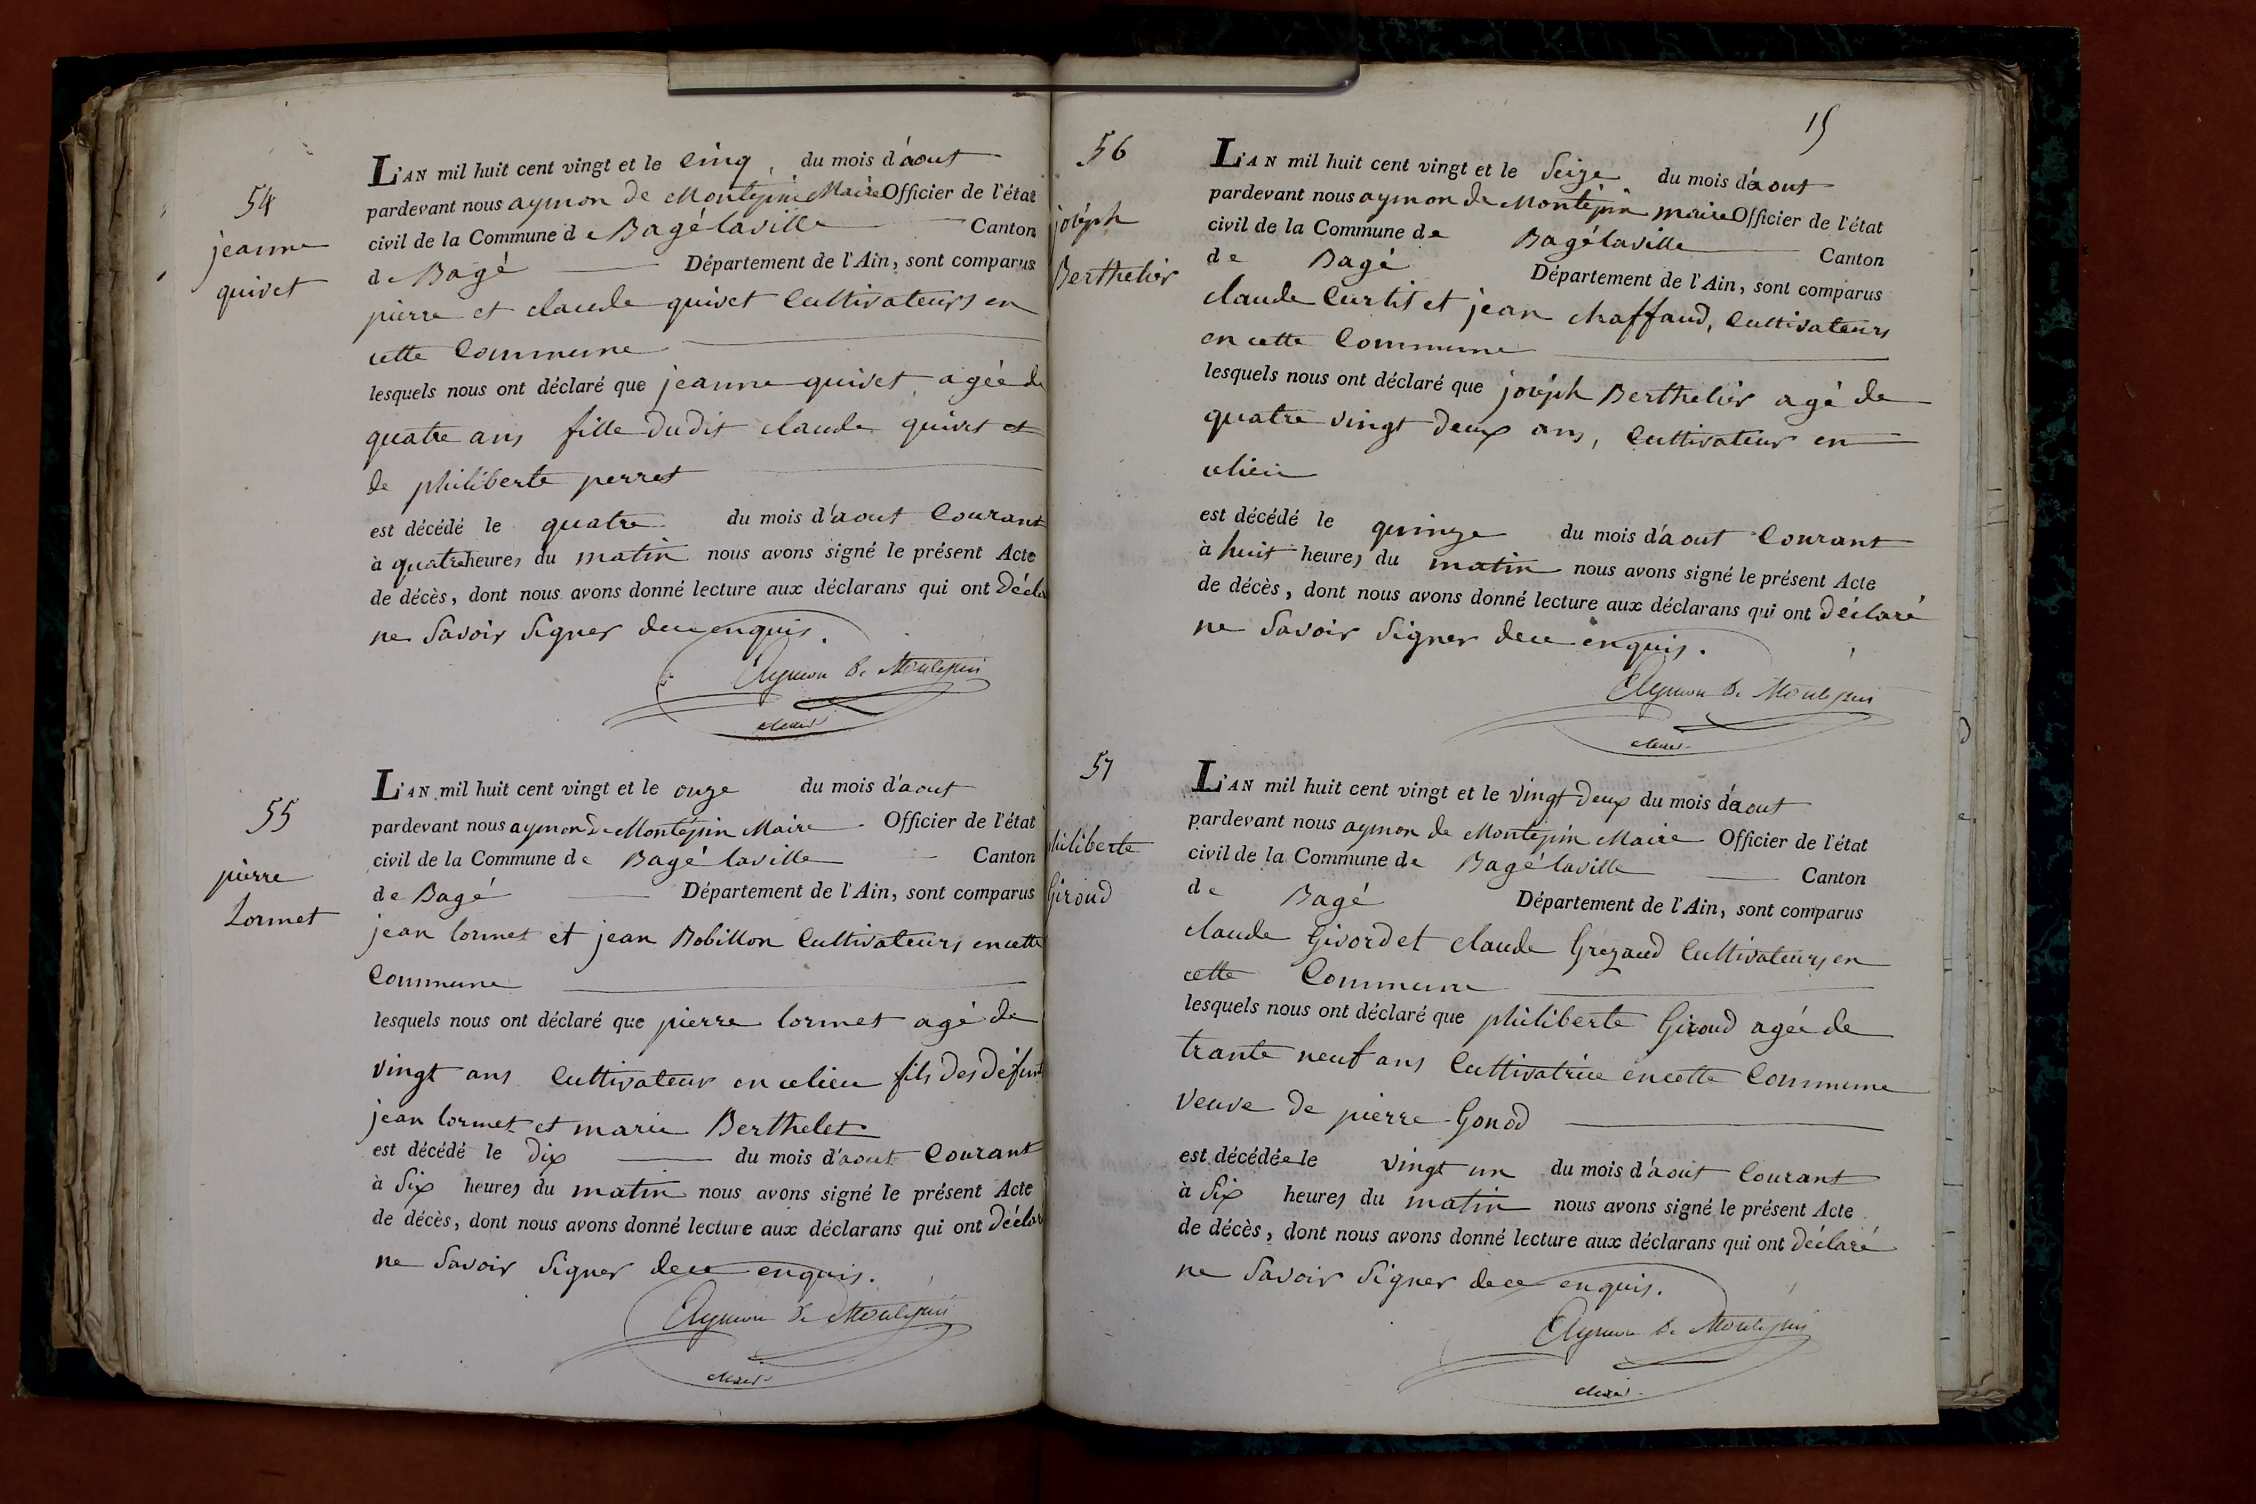 54
jeanne
quivet
L'AN mil huit cent vingt et le cinq du mois d'aout
pardevant nous aymon de Montépin Maire Officier de l'état
civil de la Commune de Bagé laville Canton
de Bagé Département de l'Ain, sont comparus
pierre et claude quivet Cultivateurs en
cette Commune
lesquels nous ont déclaré que jeanne quivet agée de
quatre ans fille dudit claude quivet et
de philiberte perret
est décédé le quatre du mois d'aout Courant
à quatre heures du matin nous avons signé le présent Acte
de décès, dont nous avons donné lecture aux déclarans qui ont Décla
ne Savoir Signer dece enquis.
Aymon De Montepin
Maire
55
pierre
Lormet
L'AN mil huit cent vingt et le onze du mois d'aout
pardevant nous aymon de Montépin Maire Officier de l'état
civil de la Commune de Bagé laville Canton
de Bagé Département de l'Ain, sont comparus
jean lormet et jean Bobillon Cultivateurs en cette
Commune
lesquels nous ont déclaré que pierre lormet agé de
vingt ans Cultivateur en celieu fils des défunt
jean lormet et marie Berthelet
est décédé le Dix du mois d'aout Courant
à Six heures du matin nous avons signé le présent Acte
de décès, dont nous avons donné lecture aux déclarans qui ont Déclar
ne Savoir Signer dece enquis.
Aymon De Montepin
Maire
15
56
joséph
Berthelier
L'AN mil huit cent vingt et le Seize du mois d'aout
pardevant nous aymon de Montépin maire Officier de l'état
civil de la Commune de Bagé laville Canton
de Bagé Département de l'Ain, sont comparus
claude Curtit et jean chaffaud, Cultivateurs
en cette Commune
lesquels nous ont déclaré que joséph Berthelier agé de
quatre vingt deux ans, Cultivateur en
celieu
est décédé le quinze du mois d'aout Courant
à huit heures du matin nous avons signé le présent Acte
de décès, dont nous avons donné lecture aux déclarans qui ont Déclaré
ne Savoir Signer dece enquis.
Aymon De Montepin
Maire
57
philiberte
Giroud
L'AN mil huit cent vingt et le vingt deux du mois d'aout
pardevant nous aymon de Montépin Maire Officier de l'état
civil de la Commune de Bagé laville Canton
de Bagé Département de l'Ain, sont comparus
claude Givord et claude Grezaud Cultivateurs en
cette Commune
lesquels nous ont déclaré que philiberte Giroud agée de
trante neuf ans Cultivatrice en cette Commune
veuve de pierre Gonod
est décédée le vingt un du mois d'aout Courant
à Six heures du matin nous avons signé le présent Acte
de décès, dont nous avons donné lecture aux déclarans qui ont Déclaré
ne Savoir Signer dece enquis.
Aymon De Montepin
Maire